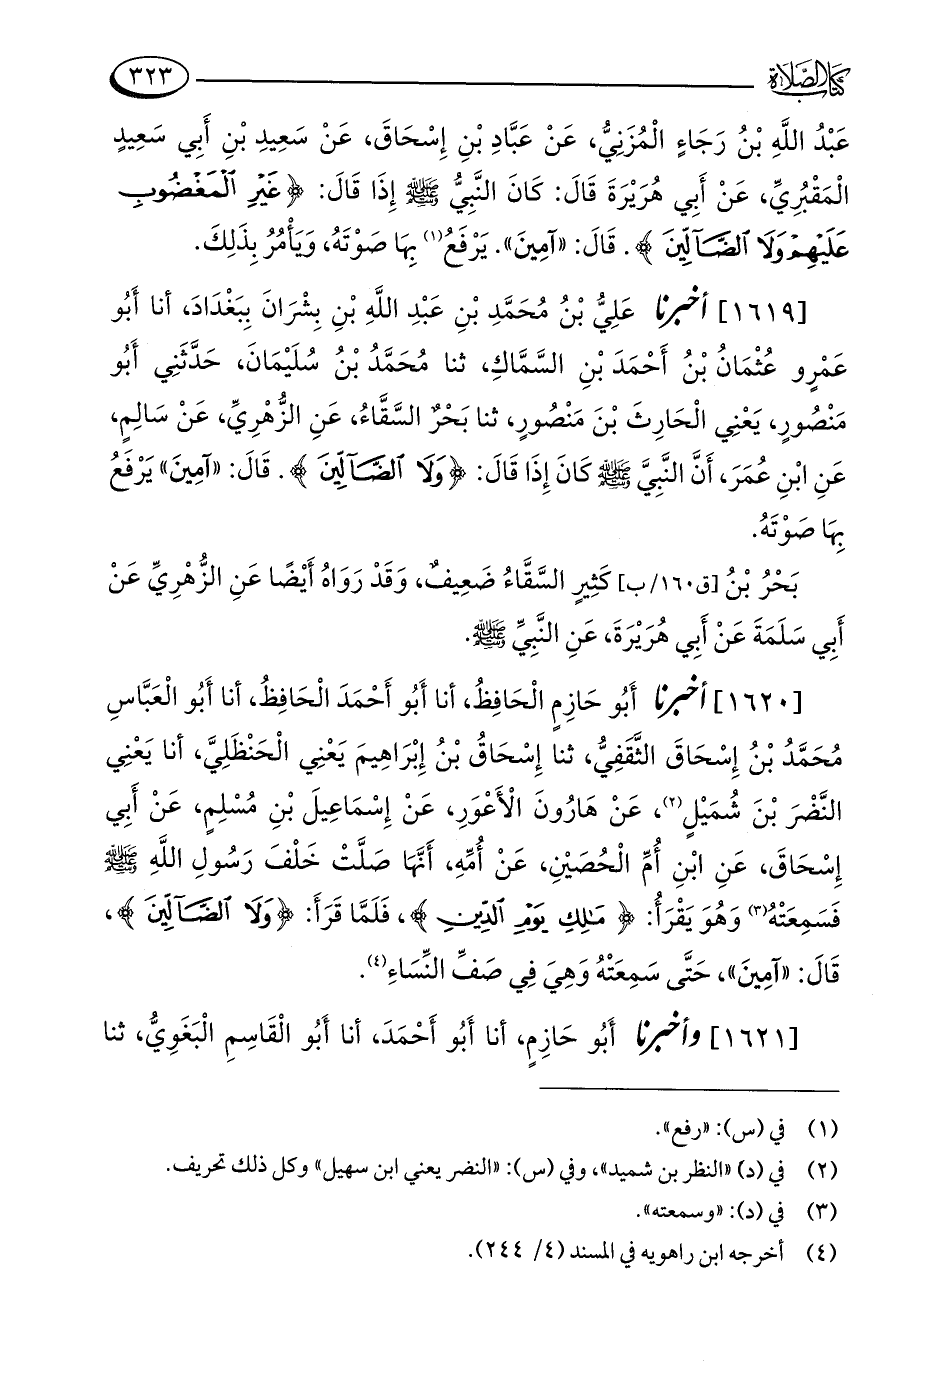 كتاب الصلاة ٣٢٣
عَبْدُ اللَّهِ بْنُ رَجَاءٍ الْمُزَنِيُّ، عَنْ عَبَّادِ بْنِ إِسْحَاقَ، عَنْ سَعِيدِ بْنِ أَبِي سَعِيدٍ
الْمَقْبُرِيِّ، عَنْ أَبِي هُرَيْرَةَ قَالَ: كَانَ النَّبِيُّ ﷺ إِذَا قَالَ: ﴿غَيْرِ ٱلْمَغْضُوبِ
عَلَيْهِمْ وَلَا ٱلضَّآلِّينَ﴾. قَالَ: «آمِينَ». يَرْفَعُ(١) بِهَا صَوْتَهُ، وَيَأْمُرُ بِذَلِكَ.
[١٦١٩] أخبرنا عَلِيُّ بْنُ مُحَمَّدِ بْنِ عَبْدِ اللَّهِ بْنِ بِشْرَانَ بِبَغْدَادَ، أنا أَبُو
عَمْرٍو عُثْمَانُ بْنُ أَحْمَدَ بْنِ السَّمَّاكِ، ثنا مُحَمَّدُ بْنُ سُلَيْمَانَ، حَدَّثَنِي أَبُو
مَنْصُورٍ، يَعْنِي الْحَارِثَ بْنَ مَنْصُورٍ، ثنا بَحْرٌ السَّقَّاءُ، عَنِ الزُّهْرِيِّ، عَنْ سَالِمٍ،
عَنِ ابْنِ عُمَرَ، أَنَّ النَّبِيَّ ﷺ كَانَ إِذَا قَالَ: ﴿وَلَا ٱلضَّآلِّينَ﴾. قَالَ: «آمِينَ» يَرْفَعُ
بِهَا صَوْتَهُ.
بَحْرُ بْنُ [ق١٦٠/ب] كَثِيرٍ السَّقَّاءُ ضَعِيفٌ، وَقَدْ رَوَاهُ أَيْضًا عَنِ الزُّهْرِيِّ عَنْ
أَبِي سَلَمَةَ عَنْ أَبِي هُرَيْرَةَ، عَنِ النَّبِيِّ ﷺ.
[١٦٢٠] أخبرنا أَبُو حَازِمٍ الْحَافِظُ، أنا أَبُو أَحْمَدَ الْحَافِظُ، أنا أَبُو الْعَبَّاسِ
مُحَمَّدُ بْنُ إِسْحَاقَ الثَّقَفِيُّ، ثنا إِسْحَاقُ بْنُ إِبْرَاهِيمَ يَعْنِي الْحَنْظَلِيَّ، أنا يَعْنِي
النَّضْرَ بْنَ شُمَيْلٍ(٢)، عَنْ هَارُونَ الْأَعْوَرِ، عَنْ إِسْمَاعِيلَ بْنِ مُسْلِمٍ، عَنْ أَبِي
إِسْحَاقَ، عَنِ ابْنِ أُمِّ الْحُصَيْنِ، عَنْ أُمِّهِ، أَنَّهَا صَلَّتْ خَلْفَ رَسُولِ اللَّهِ ﷺ
فَسَمِعَتْهُ(٣) وَهُوَ يَقْرَأُ: ﴿مَـٰلِكِ يَوْمِ ٱلدِّينِ﴾، فَلَمَّا قَرَأَ: ﴿وَلَا ٱلضَّآلِّينَ﴾،
قَالَ: «آمِينَ»، حَتَّى سَمِعَتْهُ وَهِيَ فِي صَفِّ النِّسَاءِ(٤).
[١٦٢١] وأخبرنا أَبُو حَازِمٍ، أنا أَبُو أَحْمَدَ، أنا أَبُو الْقَاسِمِ الْبَغَوِيُّ، ثنا
(١) في (س): «رفع».
(٢) في (د) «النظر بن شميد»، وفي (س): «النضر يعني ابن سهيل» وكل ذلك تحريف.
(٣) في (د): «وسمعته».
(٤) أخرجه ابن راهويه في المسند (٤/ ٢٤٤).